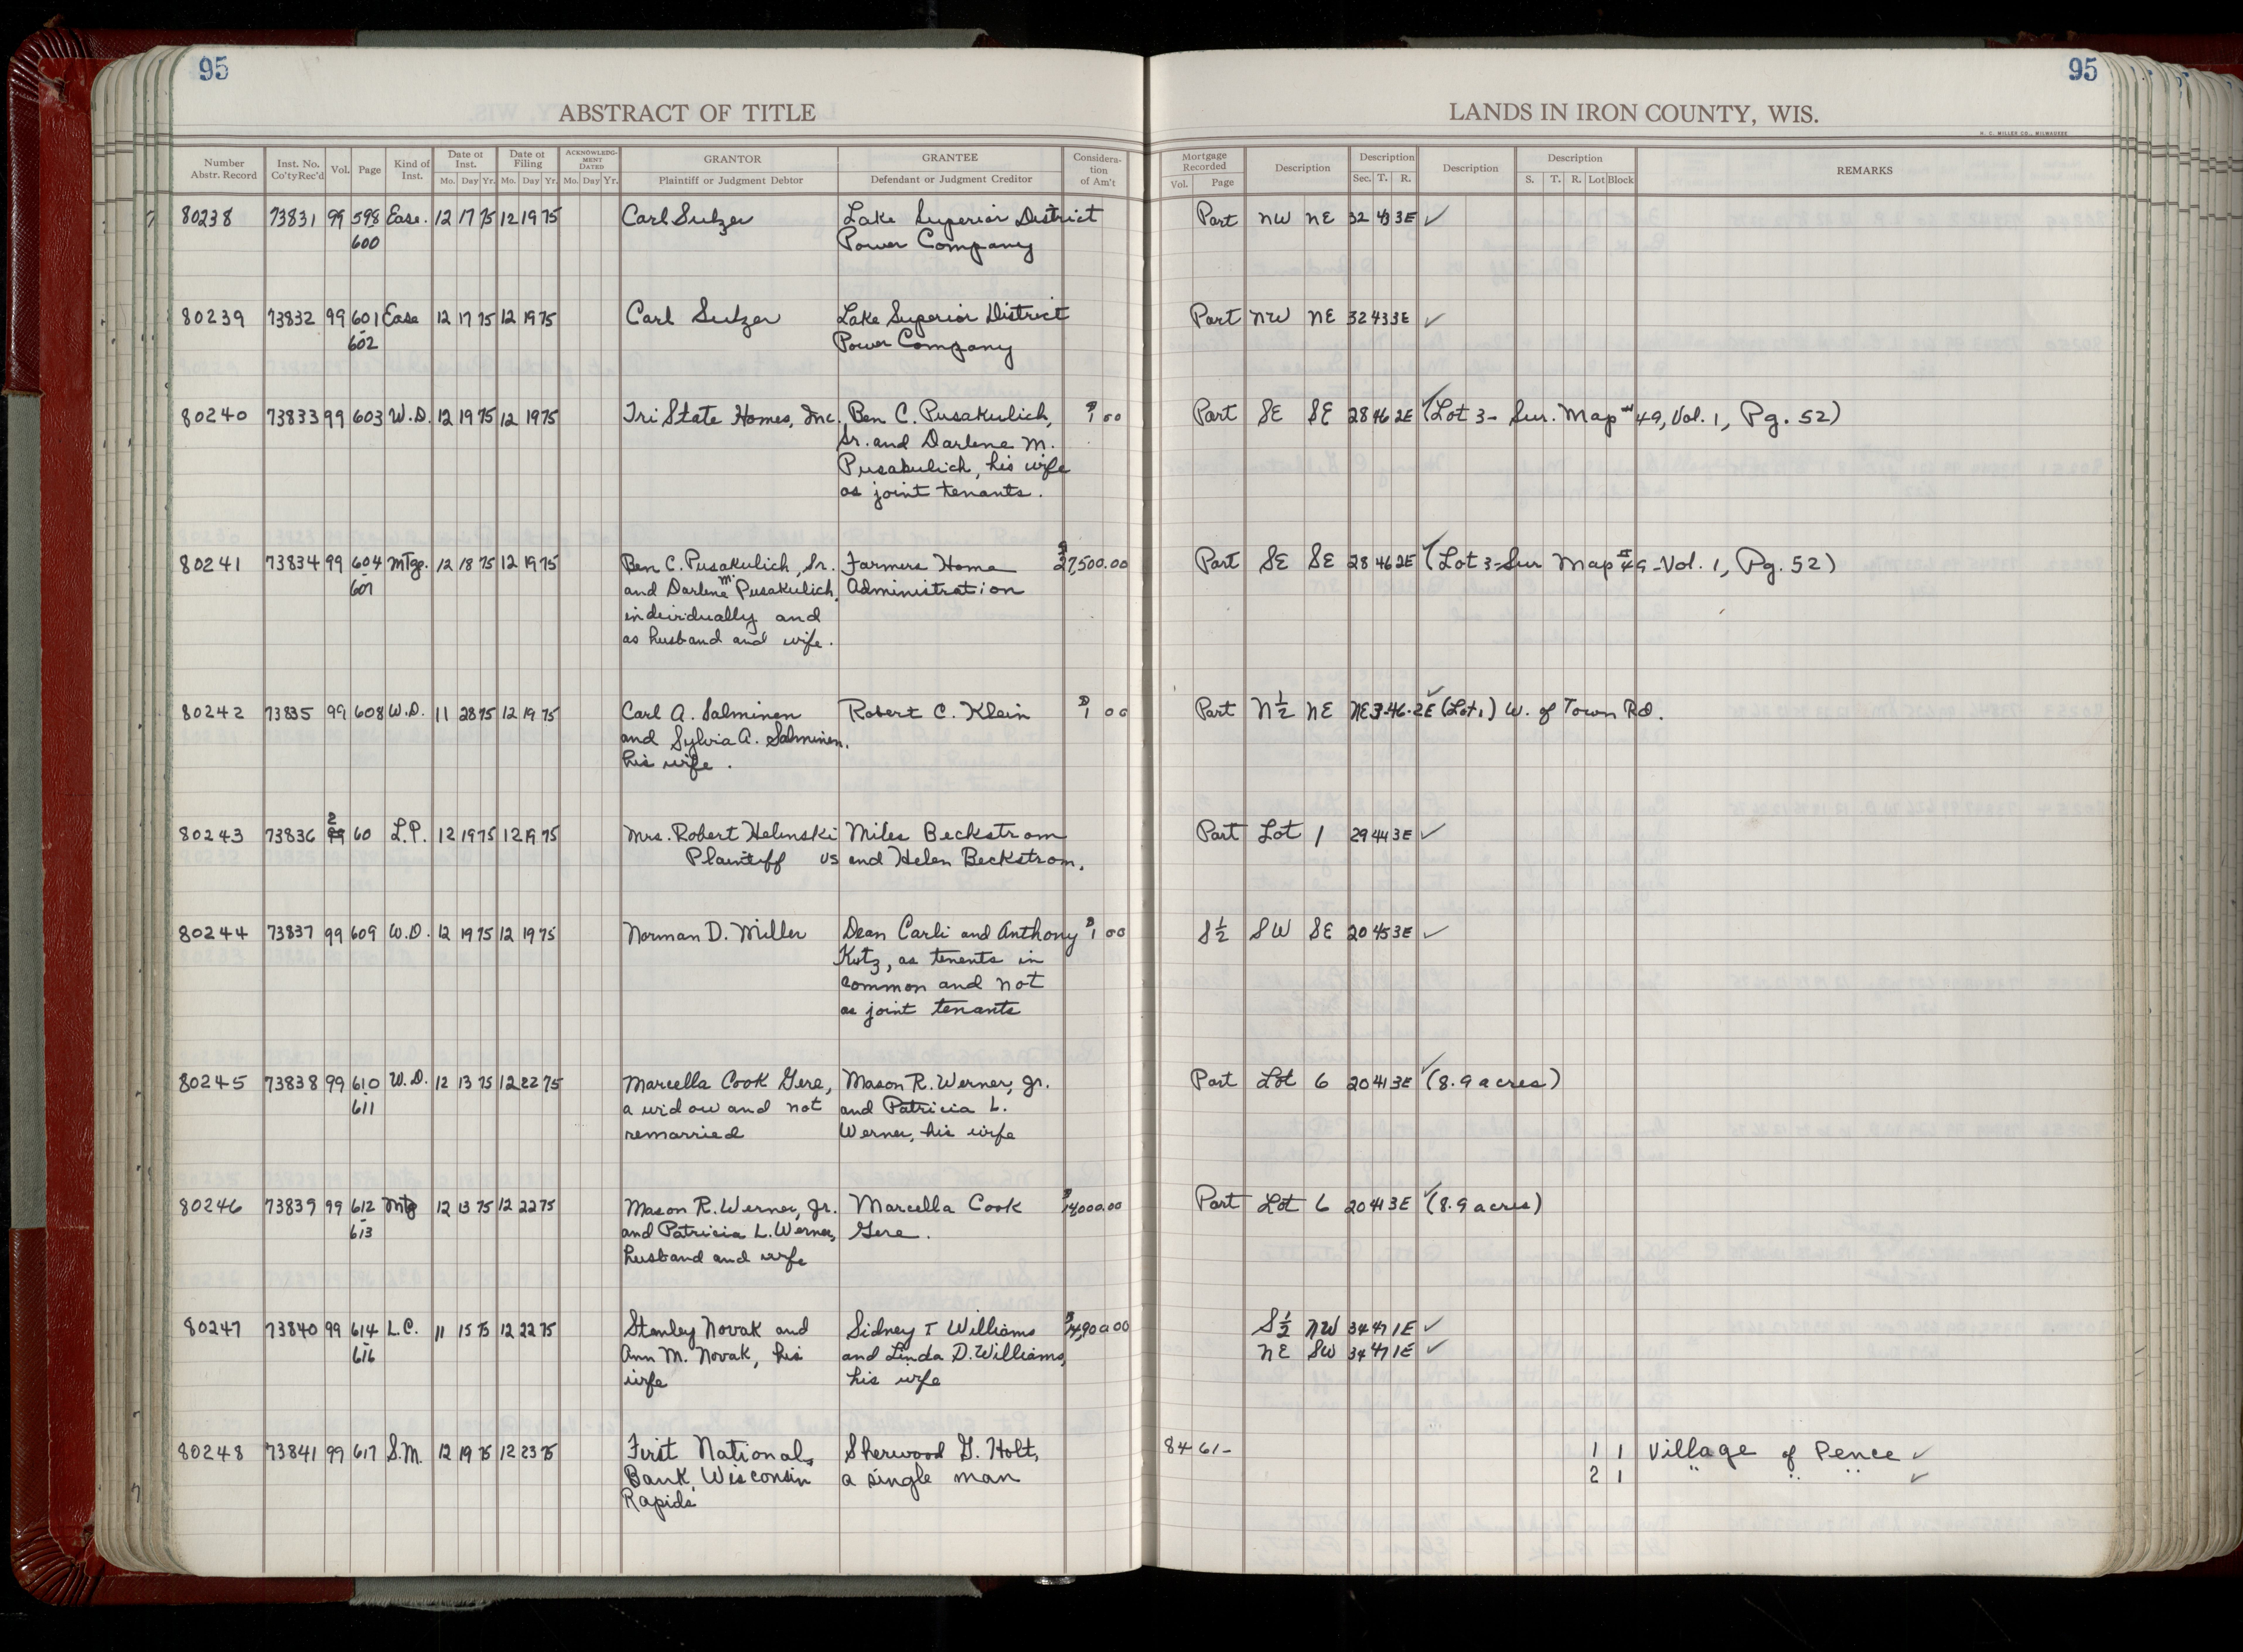 95
95
ABSTRACT OF TITLE
LANDS IN IRON COUNTY, WIS.
H. C. MILLER CO., MILWAUKEE
Number Abstr. Record Inst. No. Co'ty Rec'd Vol. Page Kind of Inst. Date of Inst. Mo. Day Yr. Date of Filing Mo. Day Yr. ACKNOWLEDGMENT DATED Mo. Day Yr. GRANTOR Plaintiff or Judgment Debtor GRANTEE Defendant or Judgment Creditor Consideration of Am't Mortgage Recorded Vol. Page Description Description Sec. T. R. Description Description S. T. R. Lot Block REMARKS
80238 73831 99 598 Ease. 12 17 75 12 19 75 Carl Sulzer Lake Superior District Part NW NE 32 43 3E ✓
600 Power Company
80239 73832 99 601 Ease 12 17 75 12 19 75 Carl Sulzer Lake Superior District Part NW NE 32 43 3E ✓
602 Power Company
80240 73833 99 603 W.D. 12 19 75 12 19 75 Tri State Homes, Inc. Ben C. Pusakulich, $1 00 Part SE SE 28 46 2E ✓ (Lot 3- Sur. Map #49, Vol. 1, Pg. 52)
Sr. and Darlene M.
Pusakulich, his wife
as joint tenants.
80241 73834 99 604 Mtge. 12 18 75 12 19 75 Ben C. Pusakulich, Sr. Farmers Home $27,500.00 Part SE SE 28 46 2E ✓ (Lot 3-Sur Map #49-Vol. 1, Pg. 52)
607 and Darlene M. Pusakulich, Administration
individually and
as husband and wife.
80242 73835 99 608 W.D. 11 28 75 12 19 75 Carl A. Salminen Robert C. Klein $1 00 Part N½ NE NE 3-46-2E ✓ (Lot 1) W. of Town Rd.
and Sylvia A. Salminen,
his wife.
80243 73836 2 99 60 L.P. 12 19 75 12 19 75 Mrs. Robert Helinski Miles Beckstrom Part Lot 1 29 44 3E ✓
Plaintiff vs and Helen Beckstrom.
80244 73837 99 609 W.D. 12 19 75 12 19 75 Norman D. Miller Dean Carli and Anthony $1 00 S½ SW SE 20 45 3E ✓
Kutz, as tenents in
common and not
as joint tenants
80245 73838 99 610 W.D. 12 13 75 12 22 75 Marcella Cook Gere, Mason R. Werner, Jr. Part Lot 6 20 41 3E ✓ (8.9 acres)
611 a widow and not and Patricia L.
remarried Werner, his wife
80246 73839 99 612 Mtg 12 13 75 12 22 75 Mason R. Werner, Jr. Marcella Cook $14000.00 Part Lot 6 20 41 3E ✓ (8.9 acres)
613 and Patricia L. Werner, Gere.
husband and wife
80247 73840 99 614 L.C. 11 15 75 12 22 75 Stanley Novak and Sidney T Williams $14,900.00 S½ NW 34 47 1E ✓
616 Ann M. Novak, his and Linda D. Williams, NE SW 34 47 1E ✓
wife his wife
80248 73841 99 617 S.M. 12 19 75 12 23 75 First National Sherwood G. Holt, 84 61- 1 1 Village of Pence ✓
Bank, Wisconsin a single man 2 1 " " " ✓
Rapids